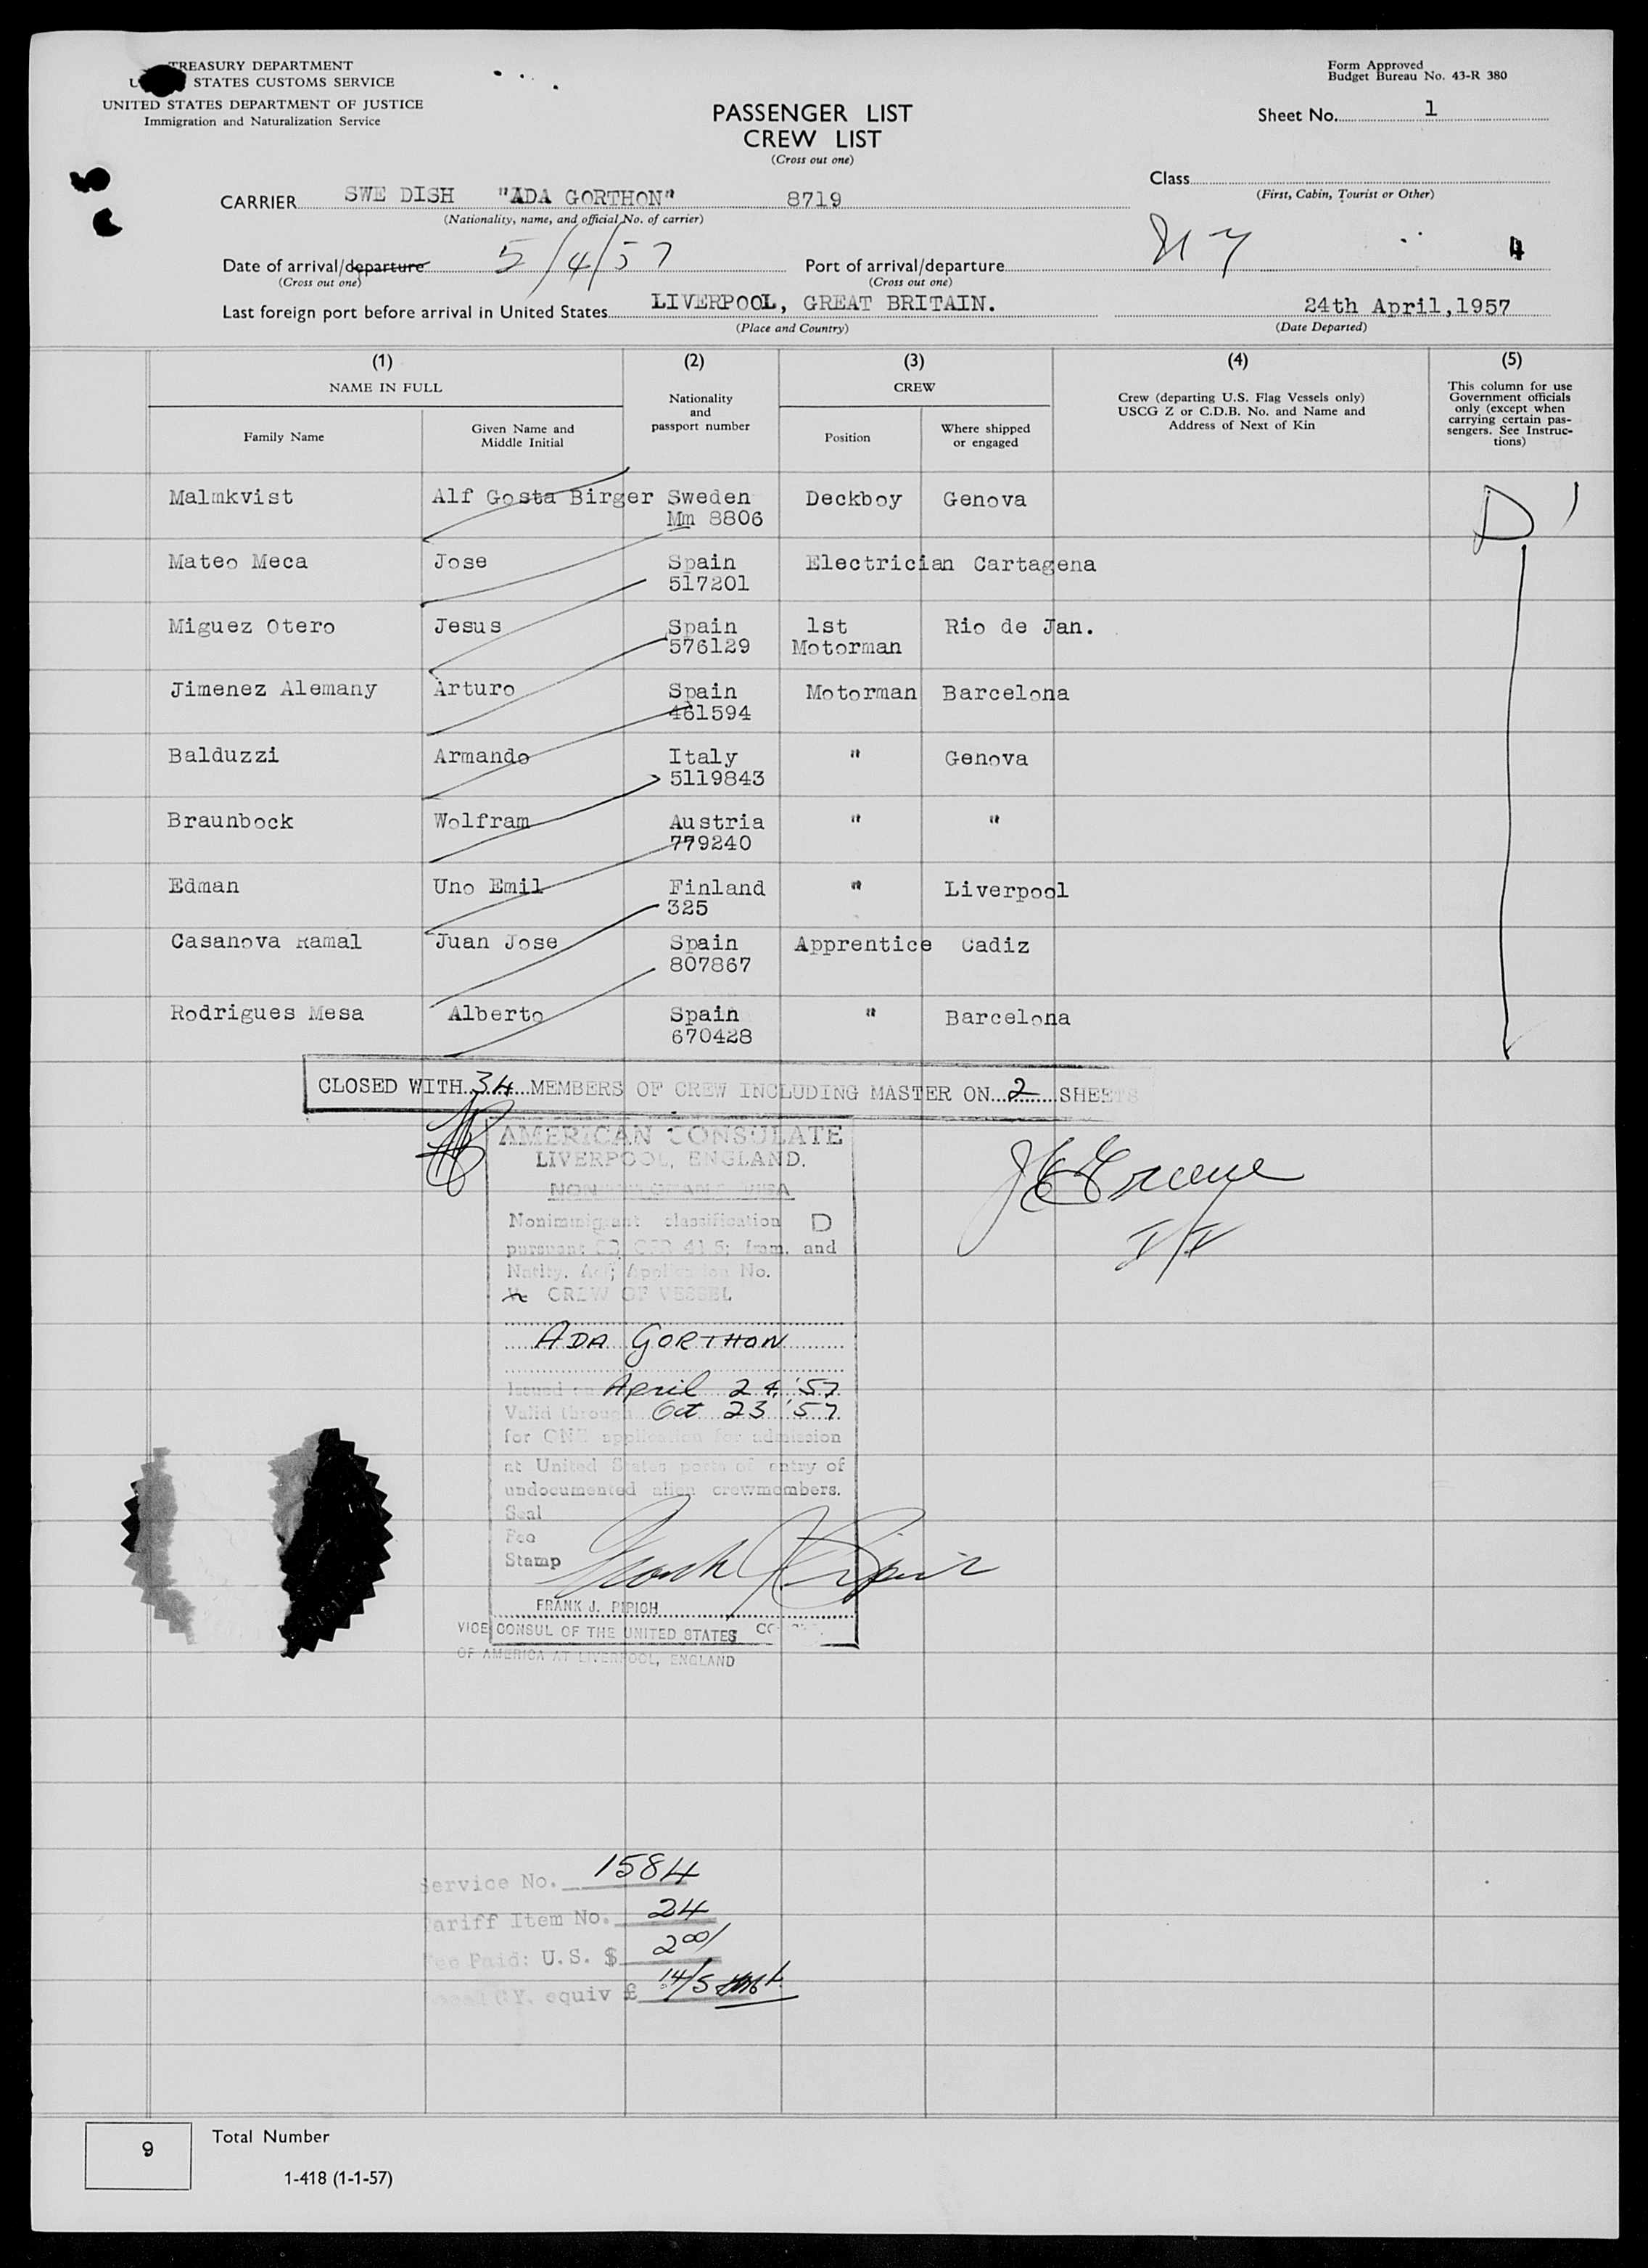 TREASURY DEPARTMENT
STATES CUSTOMS SERVICE
UNITED STATES DEPARTMENT OF JUSTICE
Immigration and Naturalization Service
Form Approved
Budget Bureau No. 43-R 380
PASSENGER LIST
CREW LIST
(Cross out one)
Sheet No. 1
Class
(First, Cabin, Tourist or Other)
CARRIER SWE DISH "ADA GORTHON" 8719
(Nationality, name, and official No. of carrier)
Date of arrival/departure 5/4/57 Port of arrival/departure NY 4
(Cross out one) (Cross out one)
Last foreign port before arrival in United States LIVERPOOL, GREAT BRITAIN. 24th April, 1957
(Place and Country) (Date Departed)
(1) (2) (3) (4) (5)
NAME IN FULL
Family Name
Given Name and
Middle Initial
Nationality
and
passport number
CREW
Position
Where shipped
or engaged
Crew (departing U.S. Flag Vessels only)
USCG Z or C.D.B. No. and Name and
Address of Next of Kin
This column for use
Government officials
only (except when
carrying certain pas-
sengers. See Instruc-
tions)
Malmkvist Alf Gosta Birger Sweden Deckboy Genova D
Mm 8806
Mateo Meca Jose Spain Electrician Cartagena
517201
Miguez Otero Jesus Spain 1st Rio de Jan.
576129 Motorman
Jimenez Alemany Arturo Spain Motorman Barcelona
461594
Balduzzi Armando Italy " Genova
5119843
Braunbock Wolfram Austria " "
779240
Edman Uno Emil Finland " Liverpool
325
Casanova Ramal Juan Jose Spain Apprentice Cadiz
807867
Rodrigues Mesa Alberto Spain " Barcelona
670428
CLOSED WITH 34 MEMBERS OF CREW INCLUDING MASTER ON 2 SHEETS
AMERICAN CONSULATE
LIVERPOOL, ENGLAND.
NONIMMIGRANT VISA
Nonimmigrant classification D
pursuant 22 CFR 41.5; Imm. and
Natlty. Act; Application No.
CREW OF VESSEL
ADA GORTHON
Issued on April 24, '57
Valid through Oct 23 '57
for ONE application for admission
at United States ports of entry of
undocumented alien crewmembers.
Seal
Fee
Stamp
FRANK J. PIPICH
VICE CONSUL OF THE UNITED STATES
OF AMERICA AT LIVERPOOL, ENGLAND
Service No. 1584
Tariff Item No. 24
Fee Paid: U.S. $ 2 00/
equiv £ 14/5
9 Total Number
1-418 (1-1-57)